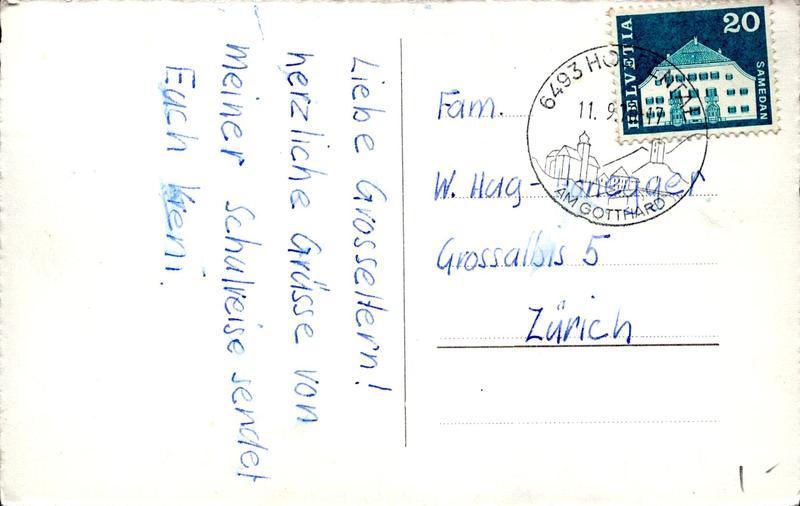 Liebe Grosseltern!
herzliche Grüsse von
meiner Schulreise sendet
Euch
Fam.
W. Hug-
Grossalbis 5
Zürich
HELVETIA
20
SAMEDAN
6493
11. 9.
17
AM GOTTHARD